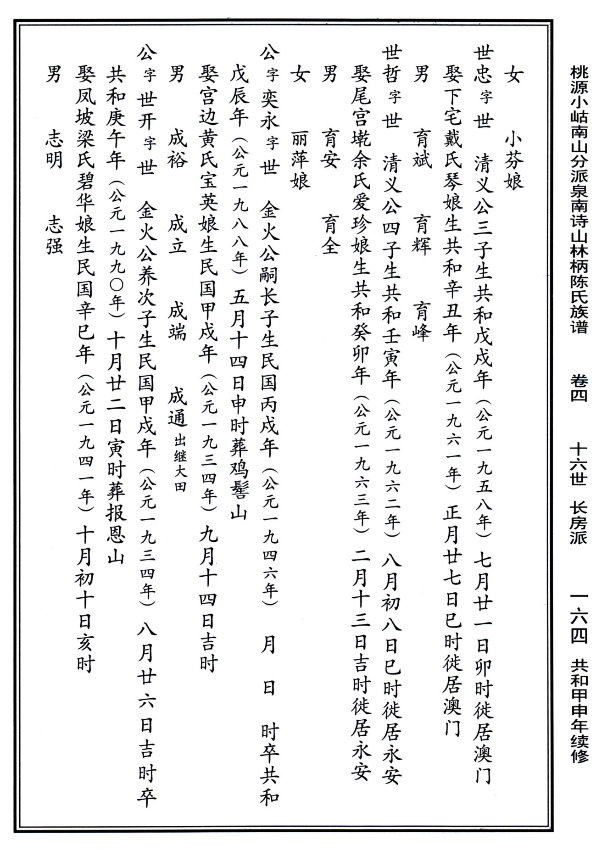 桃源小岵南山分派泉南诗山林柄陈氏族谱 卷四 十六世 长房派 一六四 共和甲申年续修
女 小芬娘
世忠字世 清义公三子生共和戊戌年（公元一九五八年）七月廿一日卯时徙居澳门
娶下宅戴氏琴娘生共和辛丑年（公元一九六一年）正月廿七日巳时徙居澳门
男 育斌 育辉 育峰
世哲字世 清义公四子生共和壬寅年（公元一九六二年）八月初八日巳时徙居永安
娶尾宫墘余氏爱珍娘生共和癸卯年（公元一九六三年）二月十三日吉时徙居永安
男 育安 育全
女 丽萍娘
公字奕永字世 金火公嗣长子生民国丙戌年（公元一九四六年）月 日 时卒共和
戊辰年（公元一九八八年）五月十四日申时葬鸡髻山
娶宫边黄氏宝英娘生民国甲戌年（公元一九三四年）九月十四日吉时
男 成裕 成立 成端 成通出继大田
公字世开字世 金火公养次子生民国甲戌年（公元一九三四年）八月廿六日吉时卒
共和庚午年（公元一九九〇年）十月廿二日寅时葬报恩山
娶凤坡梁氏碧华娘生民国辛巳年（公元一九四一年）十月初十日亥时
男 志明 志强